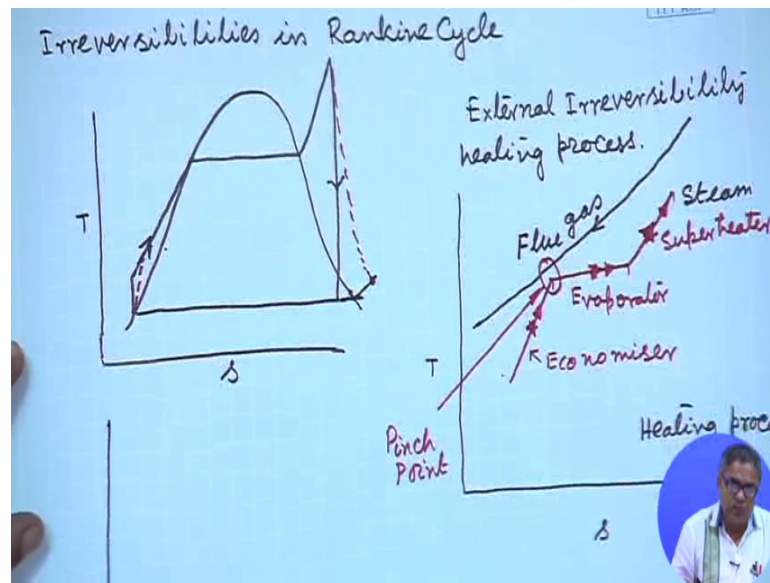 Irreversibilities in Rankine Cycle
T
s
External Irreversibility
heating process.
Flue gas
Steam
Superheater
Evaporator
Economiser
T
Pinch
Point
Heating
s